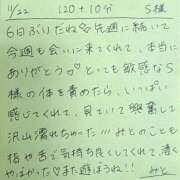 11/22 120+10分 S様
6日ぶりだね 先週に続いて
今週も会いに来てくれて、本当に
ありがとう♡♡とても敏感なS
様の体を責めたら、いっぱい
感じてくれて、見ていて興奮して
沢山濡れちゃった!!!みとのことも
指や舌で気持ち良くしてくれて、凄く
やばかった♡また遊ぼうね!! みと